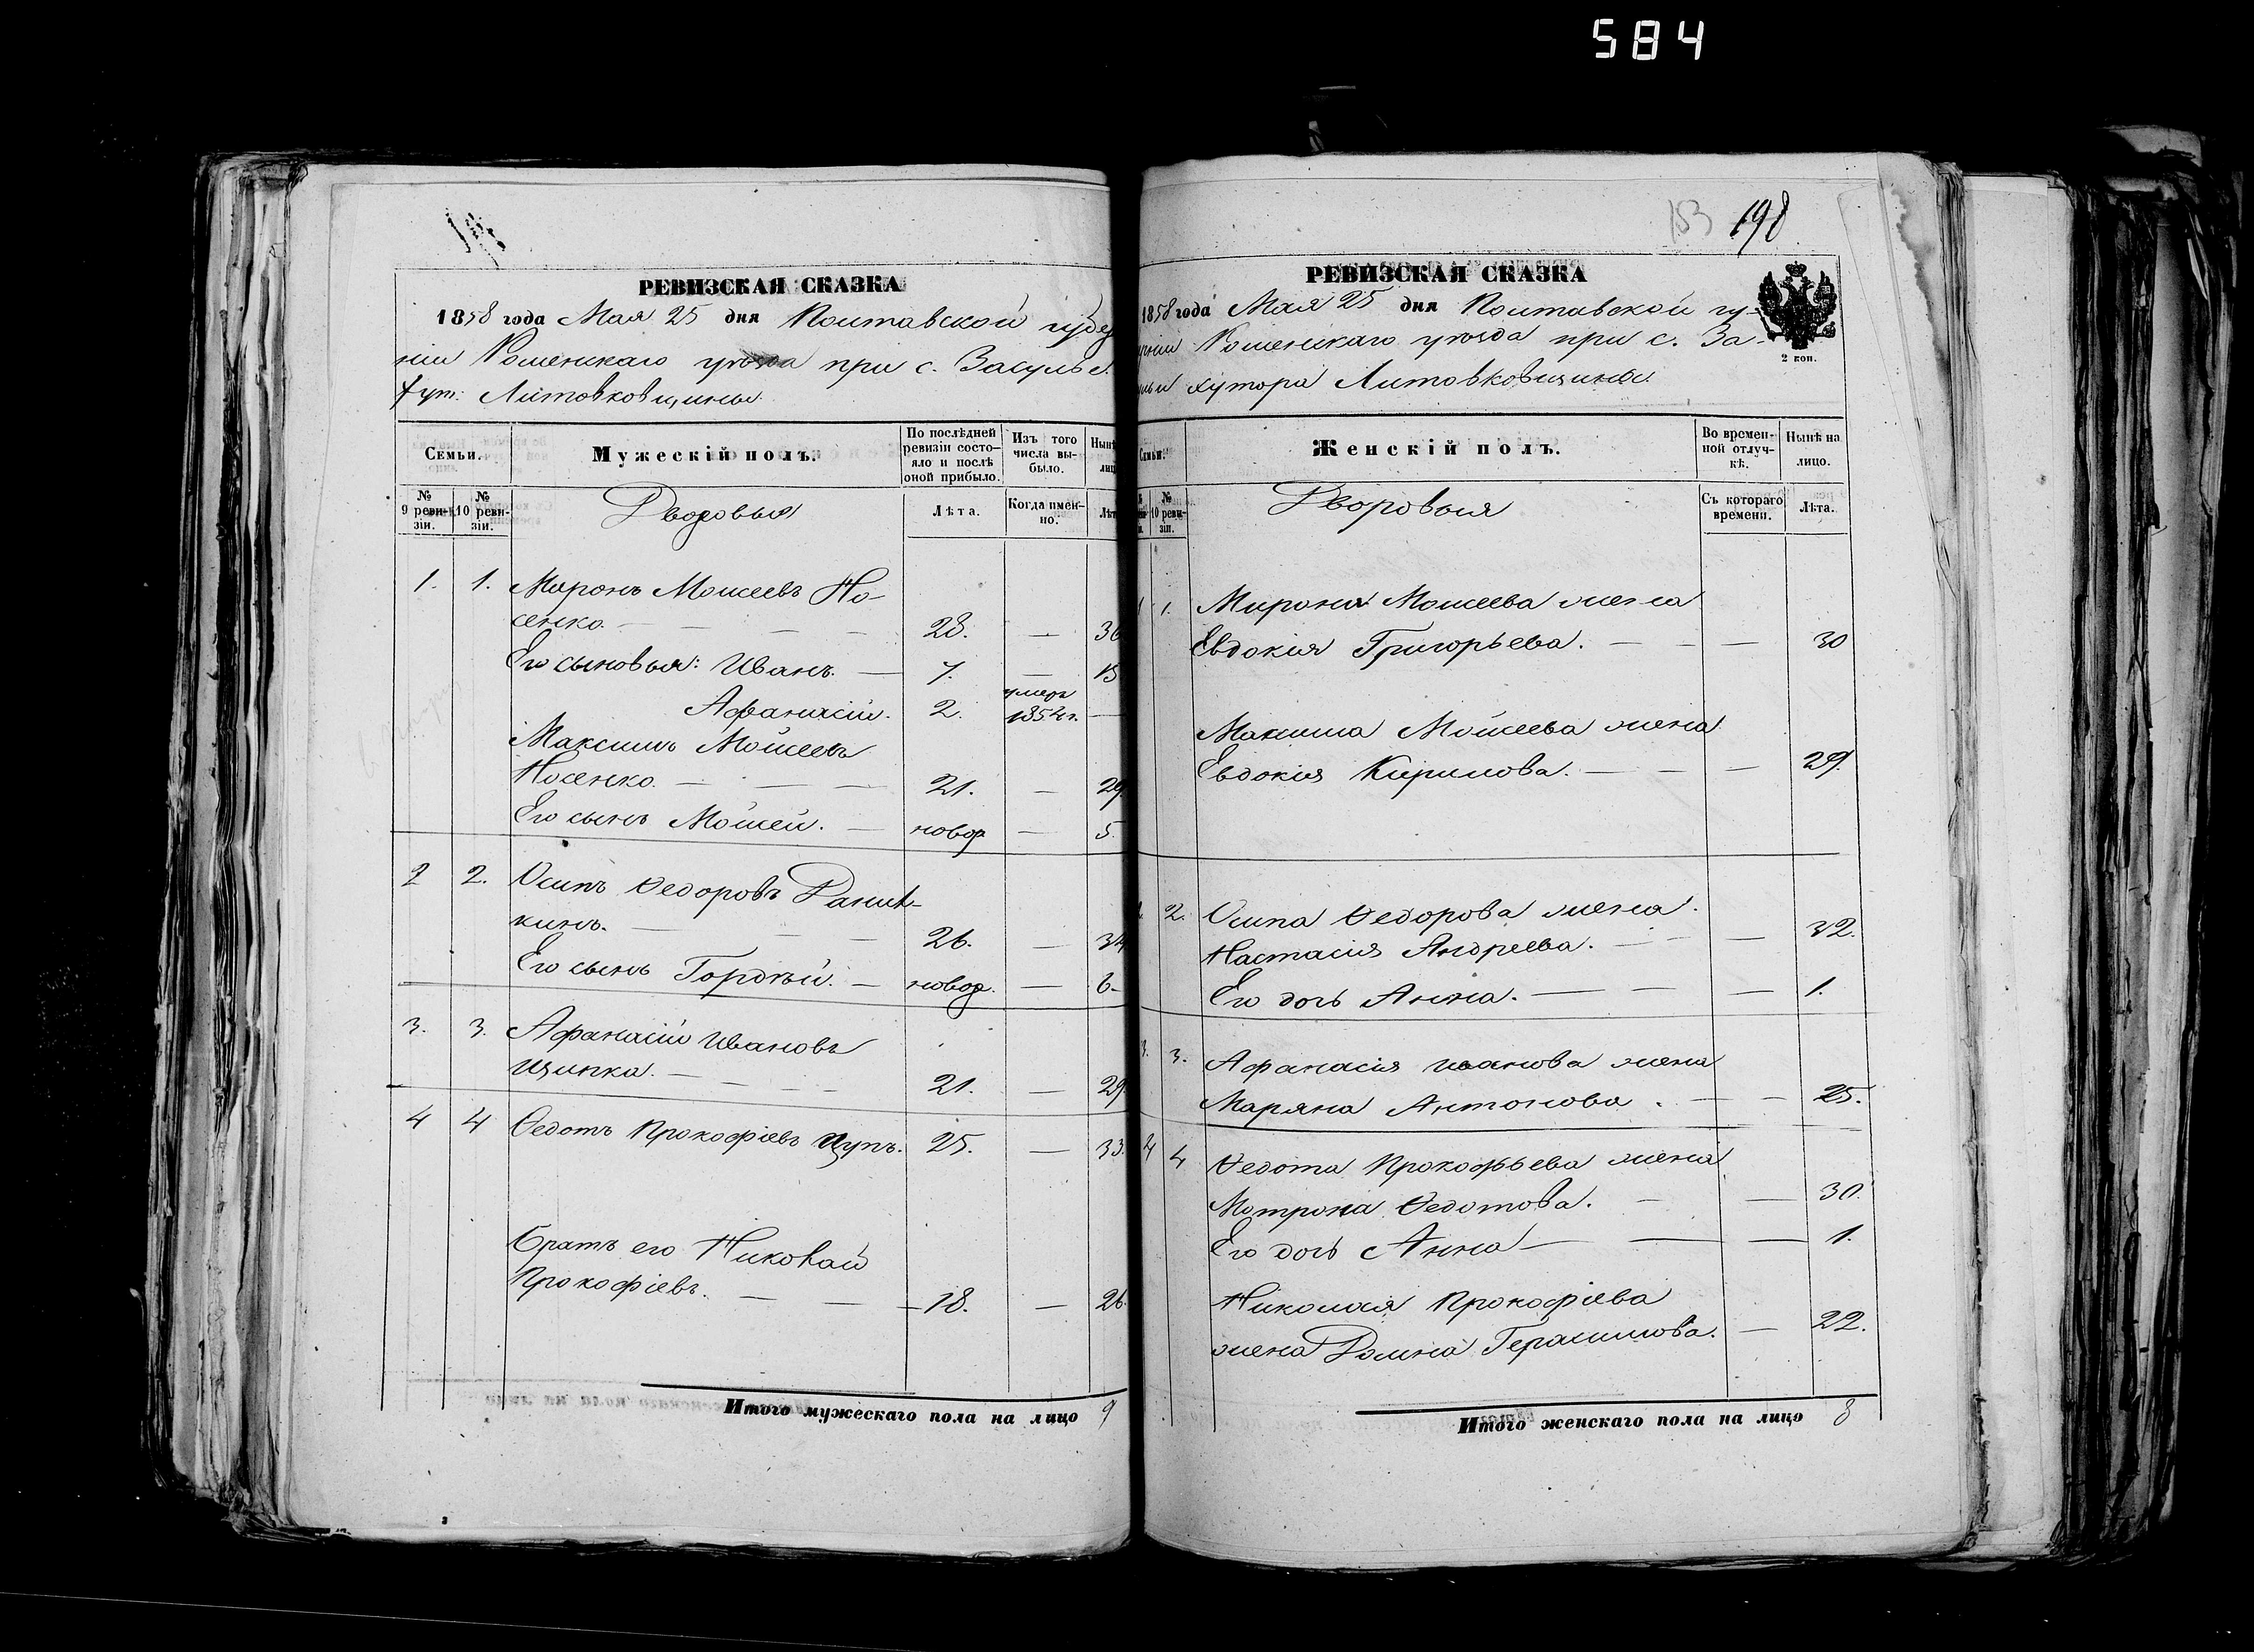 584
РЕВИЗСКАЯ СКАЗКА
1858 года Мая 25 дня Полтавской губер
ніи Роменскаго уѣзда при с. Засулье.
хут: Литовковщины
Семьи.
Мужескій полъ.
По послѣдней ревизіи состояло и послѣ оной прибыло.
Изъ того числа выбыло.
Нынѣ
лиц
№ 9 ревизіи.
№ 10 ревизіи.
Дворовыя
Лѣта.
Когда именно.
Лѣт
1. 1. Миронъ Моисеевъ Но-
сенко. — 28. — 36
Его сыновья: Иванъ. — 7. — 15
Афанасій. 2. умеръ 1854 г. —
Максимъ Мойсеевъ
Носенко. — 21. — 29.
Его сынъ Мойсей. — новор — 5.
2 2. Осипъ Ѳедоровъ
кинъ. — 26. — 34
Его сынъ Гордѣй. — новор. — 6.
3. 3. Афанасій Ивановъ
Щипка. — 21. — 29.
4 4 Ѳедотъ Прокофіевъ Цупъ. 25. — 33.
Братъ его Николай
Прокофіевъ. — 18. — 26.
Итого мужескаго пола на лицо 9
153 198
РЕВИЗСКАЯ СКАЗКА
1858 года Мая 25 дня Полтавской гу-
ерніи Роменскаго уѣзда при с. За-
хутора Литовковщины.
2 коп.
Семьи.
Женскій полъ.
Во временной отлучкѣ.
Нынѣ на лицо.
№ 10 ревизіи.
Дворовыя
Съ котораго времени.
Лѣта.
1. Мирона Моисеева жена
Евдокія Григорьева. — — 30
Максима Мойсеева жена
Евдокія Кирилова. — — 29.
2. Осипа Ѳедорова жена
Настасія Андреева. — — 32.
Его дочь Анна. — — 1.
3. 3. Афанасія Иванова жена
Маряна Антонова. — — 25.
4 4 Ѳедота Прокофьева жена
Мотрона Ѳедотова. — — 30.
Его дочь Анна — — 1.
Николая Прокофіева
жена Домна Герасимова. — 22.
Итого женскаго пола на лицо 8